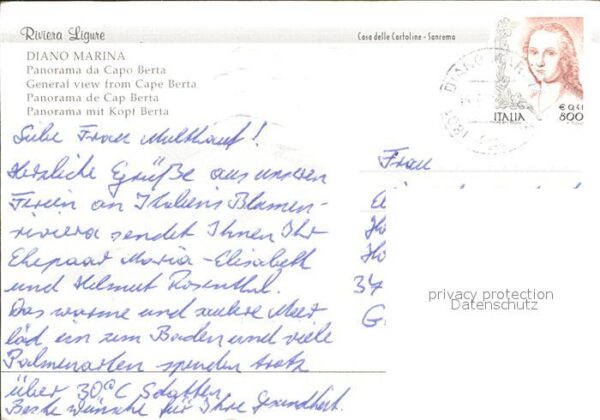 Riviera Ligure
Casa delle Cartoline - Sanremo
DIANO MARINA
Panorama da Capo Berta
General view from Cape Berta
Panorama de Cap Berta
Panorama mit Kopf Berta
DIANO MAR
ITALIA
€ 0,41
800
Liebe Frau Multhauf!
Herzliche Grüße aus unseren
Ferien an Italiens Blumen-
riviera sendet Ihnen Ihr
Ehepaar Maria-Elisabeth
und Helmut Rosenthal.
Das warme und saubere Meer
läd ein zum Baden und viele
Palmenarten spenden trotz
über 30°C Schatten.
Beste Wünsche für Ihre Gesundheit.
Frau
37
G
privacy protection
Datenschutz